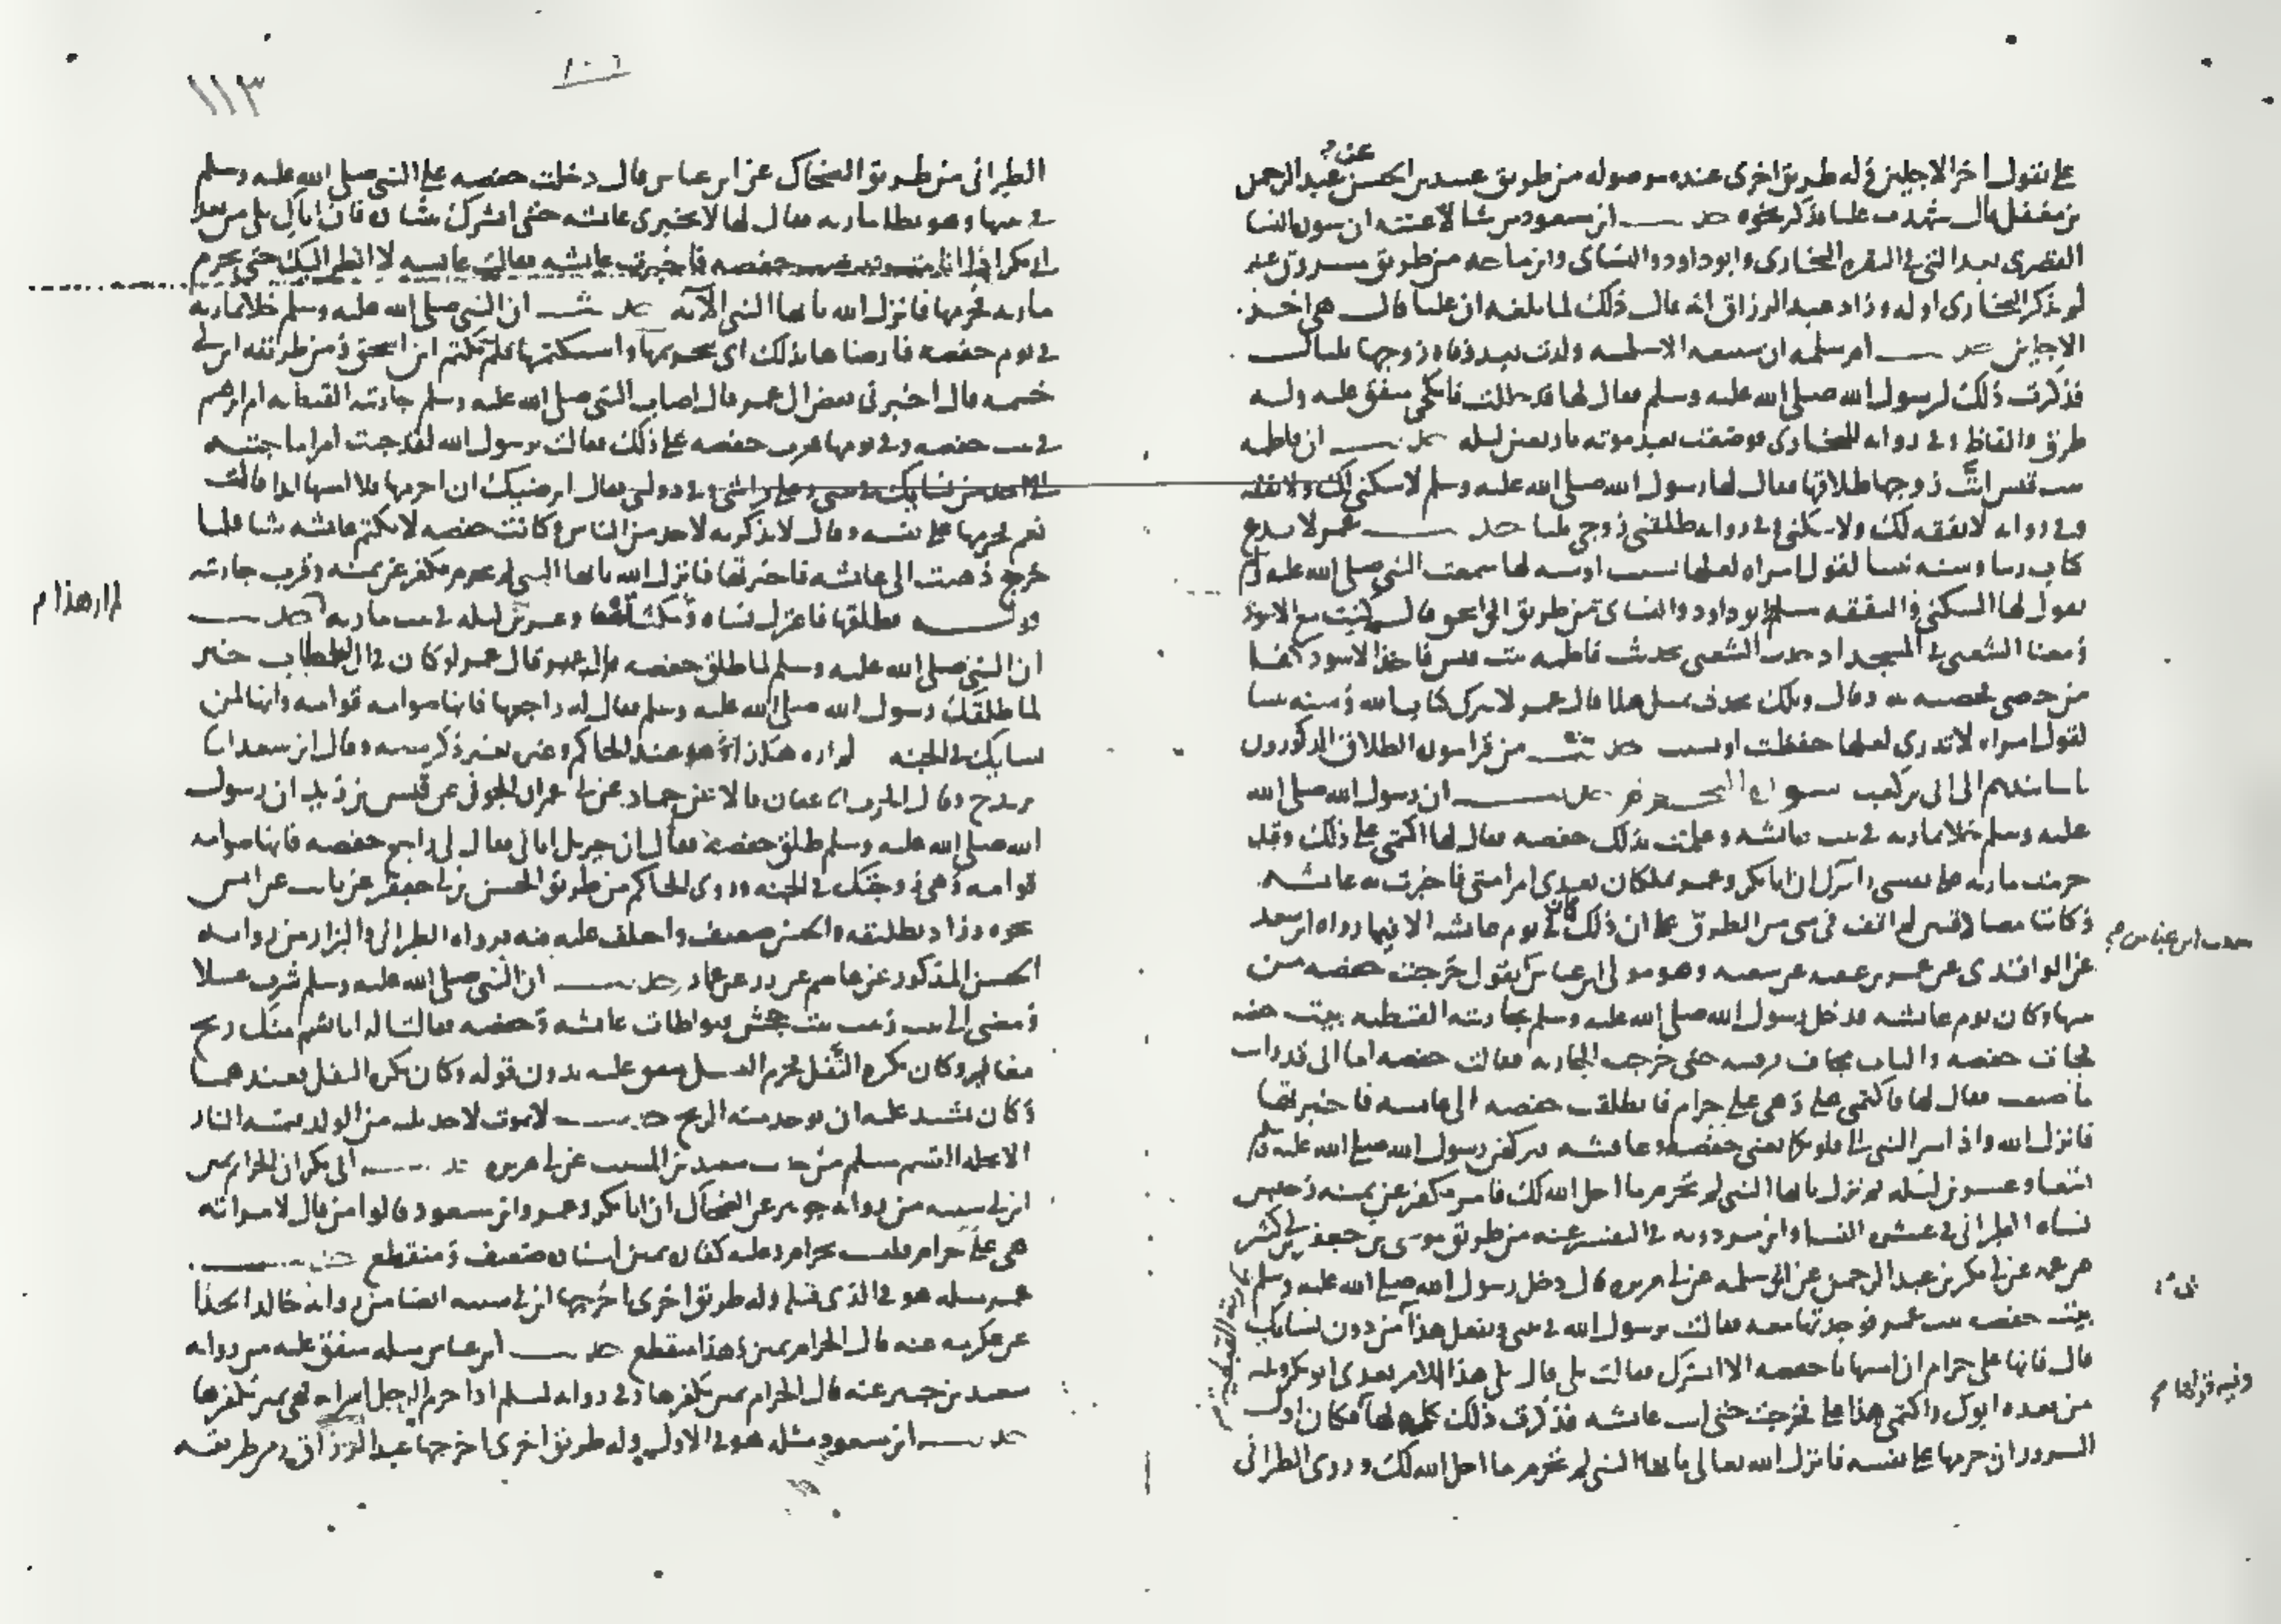 علي تقول اخر الاجلين وله طريق اخرى عنده موصوله من طريق عبيد بن الحسن عن عبد الرحمن
بن معقل قال شهدت عليا فذكر نحوه حد ابن مسعود من شا لاعنته ان سوره النسا
القصرى بعد التي في البقره البخاري وابو داود والنساي وابن ماجه من طريق مسروق عنه
لم يذكر البخاري اوله وزاد عبد الرزاق انه قال ذلك لما بلغه ان عليا قال هي اخر
الاجلين حد ام سلمه ان سبيعه الاسلميه ولدت بعد وفاه زوجها بليال
فذكرت ذلك لرسول الله صلى الله عليه وسلم فقال لها قد حللت فانكحي متفق عليه وله
طرق والفاظ وفي روايه للبخاري فوضعت بعد موته باربعين ليله حد ان فاطمه
بنت قيس ابت زوجها طلاقها فقال لها رسول الله صلى الله عليه وسلم لا سكنى لك ولا نفقه
وفي روايه لا نفقه لك ولا سكنى وفي روايه طلقني زوجي ثلثا حد عمر لا ندع
كتاب ربنا وسنه نبينا لقول امراه لعلها نسيت او شبه لها سمعت النبي صلى الله عليه وسلم
يقول لها السكنى والنفقه مسلم ابو داود والنساي من طريق ابي اسحق قال كنت مع الاسود
ومعنا الشعبي في المسجد اذ حدث الشعبي بحديث فاطمه بنت قيس فاخذ الاسود كفا
من حصى فحصبه به وقال ويلك تحدث بمثل هذا قال عمر لا نترك كتاب الله وسنه نبينا
لقول امراه لا ندري لعلها حفظت او نسيت حد من قرا سوره الطلاق المذكورون
باسانيدهم الى ابي بن كعب سوره التحريم حد ان رسول الله صلى الله
عليه وسلم خلا بماريه في بيت عايشه وعلمت بذلك حفصه فقال لها اكتمي علي ذلك وقد
حرمت ماريه على نفسي وابشرك ان ابا بكر وعمر يملكان بعدي امر امتي فاخبرت به عايشه
وكانتا متصادقتين لم اقف في شي من الطرق على ان ذلك كان في يوم عايشه الا فيما رواه ابن سعد
حديث ابن عباس م
عن الواقدي عن عمر بن عقبه عن شعبه وهو مولى ابن عباس يقول خرجت حفصه من
بيتها وكان يوم عايشه فدخل رسول الله صلى الله عليه وسلم بجاريته القبطيه بيت حفصه
فجات حفصه والباب مجاف فرقبته حتى خرجت الجاريه فقالت حفصه اما اني قد رايت
ما صنعت فقال لها فاكتمي علي وهي علي حرام فانطلقت حفصه الى عايشه فاخبرتها
فانزل الله واذ اسر النبي الى قلوبكما يعني حفصه وعايشه فتركهن رسول الله صلى الله عليه وسلم
تسعا وعشرين ليله ثم نزل يا ايها النبي لم تحرم ما احل الله لك فامر فكفر عن يمينه وحبس
نساه الطبراني في عشره النسا وابن مردويه في التفسير عنه من طريق موسى بن جعفر بن ابي كثير
عن عمه عن ابي بكر بن عبد الرحمن عن ابي سلمه عن ابي هريره قال دخل رسول الله صلى الله عليه وسلم بماريه القبطيه
بيت حفصه بنت عمر فوجدتها معه فقالت يرسول الله في بيتي وتفعل هذا من دون نسايك
قال فانها علي حرام ان امسها يا حفصه الا ابشرك فقالت بلى قال يلي هذا الامر بعدي ابو بكر ويليه
من بعده ابوك واكتمي هذا علي فخرجت حتى اتت عايشه فذكرت ذلك كله لها فكان اول
السرور ان حرمها على نفسه فانزل الله تعالى يا ايها النبي لم تحرم ما احل الله لك وروى الطبراني
١١٣
الطبراني من طريق الضحاك عن ابن عباس قال دخلت حفصه على النبي صلى الله عليه وسلم
في بيتها وهو يطا ماريه فقال لها لا تخبري عايشه حتى ابشرك بشاره فان اباك يلي من بعد
ابي بكر اذا انا مت فذهبت حفصه فاخبرت عايشه فقالت عايشه لا انظر اليك حتى تحرم
ماريه فحرمها فانزل الله يا ايها النبي الآيه حد ان النبي صلى الله عليه وسلم خلا بماريه
في يوم حفصه فارضاها بذلك اي بتحريمها واستكتمها فلم تكتم ابن اسحق ومن طريقه ابن ابي
خيثمه قال اخبرني بعض ال عمر قال اصاب النبي صلى الله عليه وسلم جاريته القبطيه ام ابرهيم
في بيت حفصه وفي يومها فعرفت حفصه على ذلك فقالت يرسول الله لقد جيت امرا ما جيته
الى احد من نسايك في بيتي وعلى فراشي وفي دولتي فقال ايرضيك ان احرمها فلا امسها ابدا قالت
نعم فحرمها على نفسه وقال لا تذكريه لاحد من الناس وكانت حفصه لا تكتم عايشه شيا فلما
خرج ذهبت الى عايشه فاخبرتها فانزل الله يا ايها النبي لم تحرم فكفر عن يمينه وقرب جاريته
قوله فطلقها فاعتزل نساه ومكث تسعا وعشرين ليله في بيت ماريه حد
لم ار هذا م
ان النبي صلى الله عليه وسلم لما طلق حفصه قال عمر لو كان في ال الخطاب خير
لما طلقك رسول الله صلى الله عليه وسلم فقال له راجعها فانها صوامه قوامه وانها لمن
نسايك في الجنه لم اره هكذا وهو عند الحاكم وغيره بغير ذكر سببه وقال ابن سعد
ان رسول
الله صلى الله عليه وسلم طلق حفصه فقال ان جبريل اتاني فقال لي راجع حفصه فانها صوامه
قوامه وهي زوجتك في الجنه وروى الحاكم من طريق الحسن بن ابي جعفر عن ثابت عن انس
نحوه وزاد تطليقه والحسن ضعيف واختلف عليه فيه فرواه الطبراني والبزار من روايه
الحسن المذكور عن عاصم عن زر عن عمار حد ان النبي صلى الله عليه وسلم شرب عسلا
ومضى الى بيت زينب بنت جحش فتواطات عايشه وحفصه فقالتا له انا نشم منك ريح
مغافير وكان يكره التفل فحرم العسل متفق عليه بدون قوله وكان يكره التفل بعندهما
وكان يشتد عليه ان يوجد منه الريح حد لا يموت لاحد ثلثه من الولد فتمسه النار
الا تحله القسم مسلم من حديث سعيد بن المسيب عن ابي هريره حد ابي بكر ان الحرام يمين
ابن ابي شيبه من روايه جويبر عن الضحاك ان ابا بكر وعمر وابن مسعود قالوا من قال لامراته
هي علي حرام فليست بحرام وعليه كفاره يمين اسناده ضعيف ومنقطع حد
عمر مثله هو في الذي قبله وله طريق اخرى اخرجها ابن ابي شيبه ايضا من روايه خالد الحذا
عن عكرمه عنه قال الحرام يمين وهذا منقطع حد ابن عباس مثله متفق عليه من روايه
سعيد بن جبير عنه قال الحرام يمين يكفرها وفي روايه لمسلم اذا حرم الرجل امراته فهي يمين يكفرها
حد ابن مسعود مثله هو في الاول وله طريق اخرى اخرجها عبد الرزاق ومن طريقه